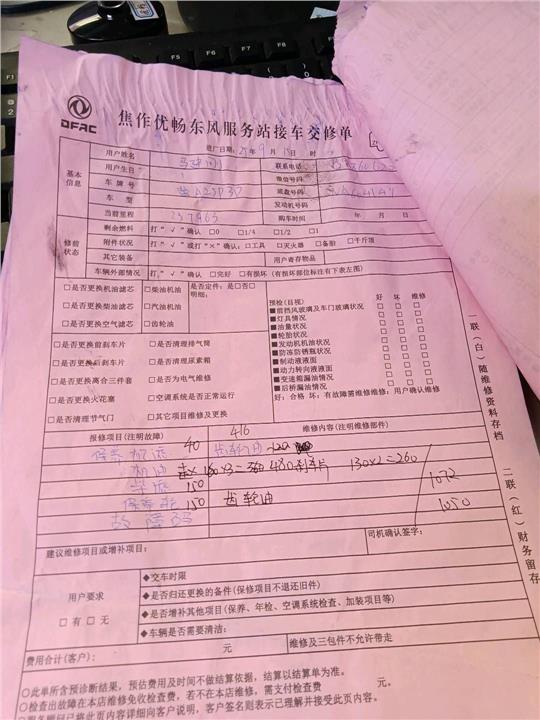 DFAC
焦作优畅东风服务站接车交修单
进厂日期：25年9月15日 时
基本信息
用户姓名
联系电话
用户生日
微信号码
车牌号
底盘号码
车型
发动机号码
当前里程 237463
购车时间 年 月 日
修前状态
剩余燃料 打“√”确认 □0 □1/4 □1/2 □1
附件状况 打“√”或打“×”确认：□工具 □灭火器 □备胎 □千斤顶
其它装备 用户寄存物品
车辆外部情况 打“√”确认 □完好 □有损坏（有损坏部位标注有下表左图）
□是否更换机油滤芯 □柴油机油
□是否更换柴油滤芯 □汽油机油
□是否更换空气滤芯 □齿轮油
是否定件：是□否□
明细：
□是否更换前刹车片 □是否清理排气筒
□是否更换后刹车片 □是否清理尿素箱
□是否更换离合三件套 □是否为电气维修
□是否更换火花塞 □空调系统是否正常运行
□是否清理节气门 □其它项目维修及更换
预检（目视） 好 坏 维修
■前挡风玻璃及车门玻璃状况 □ □ □
■灯具情况 □ □ □
■油量状况 □ □ □
■轮胎状况 □ □ □
■发动机机油状况 □ □ □
■防冻防锈瓶状况 □ □ □
■制动液液面 □ □ □
■动力转向液液面 □ □ □
■变速箱漏油情况 □ □ □
■后桥漏油情况 □ □ □
好：合格 坏：有故障需维修维修：用户确认维修
一联（白）随维修资料存档
二联（红）财务留存
报修项目（注明故障） 维修内容（注明维修部件）
40 416
机油 160×3= 480 刹车片 130×2=260
150 1072
保养 150 齿轮油 1050
故障码
建议维修项目或增补项目：
司机确认签字：
用户要求
□有 □无
◆交车时限
◆是否归还更换的备件（保修项目不退还旧件）
◆是否增补其他项目（保养、年检、空调系统检查、加装项目等）
◆车辆是否需要清洁：
费用合计（客户）： 元 维修及三包件不允许带走
○此单所含预诊断结果，预估费用及时间不做结算依据，结算以结算单为准。
○检查出故障在本店维修免收检查费，若不在本店维修，需支付检查费 元。
已将此页内容详细向客户说明，客户签名则表示已理解并接受此页内容。